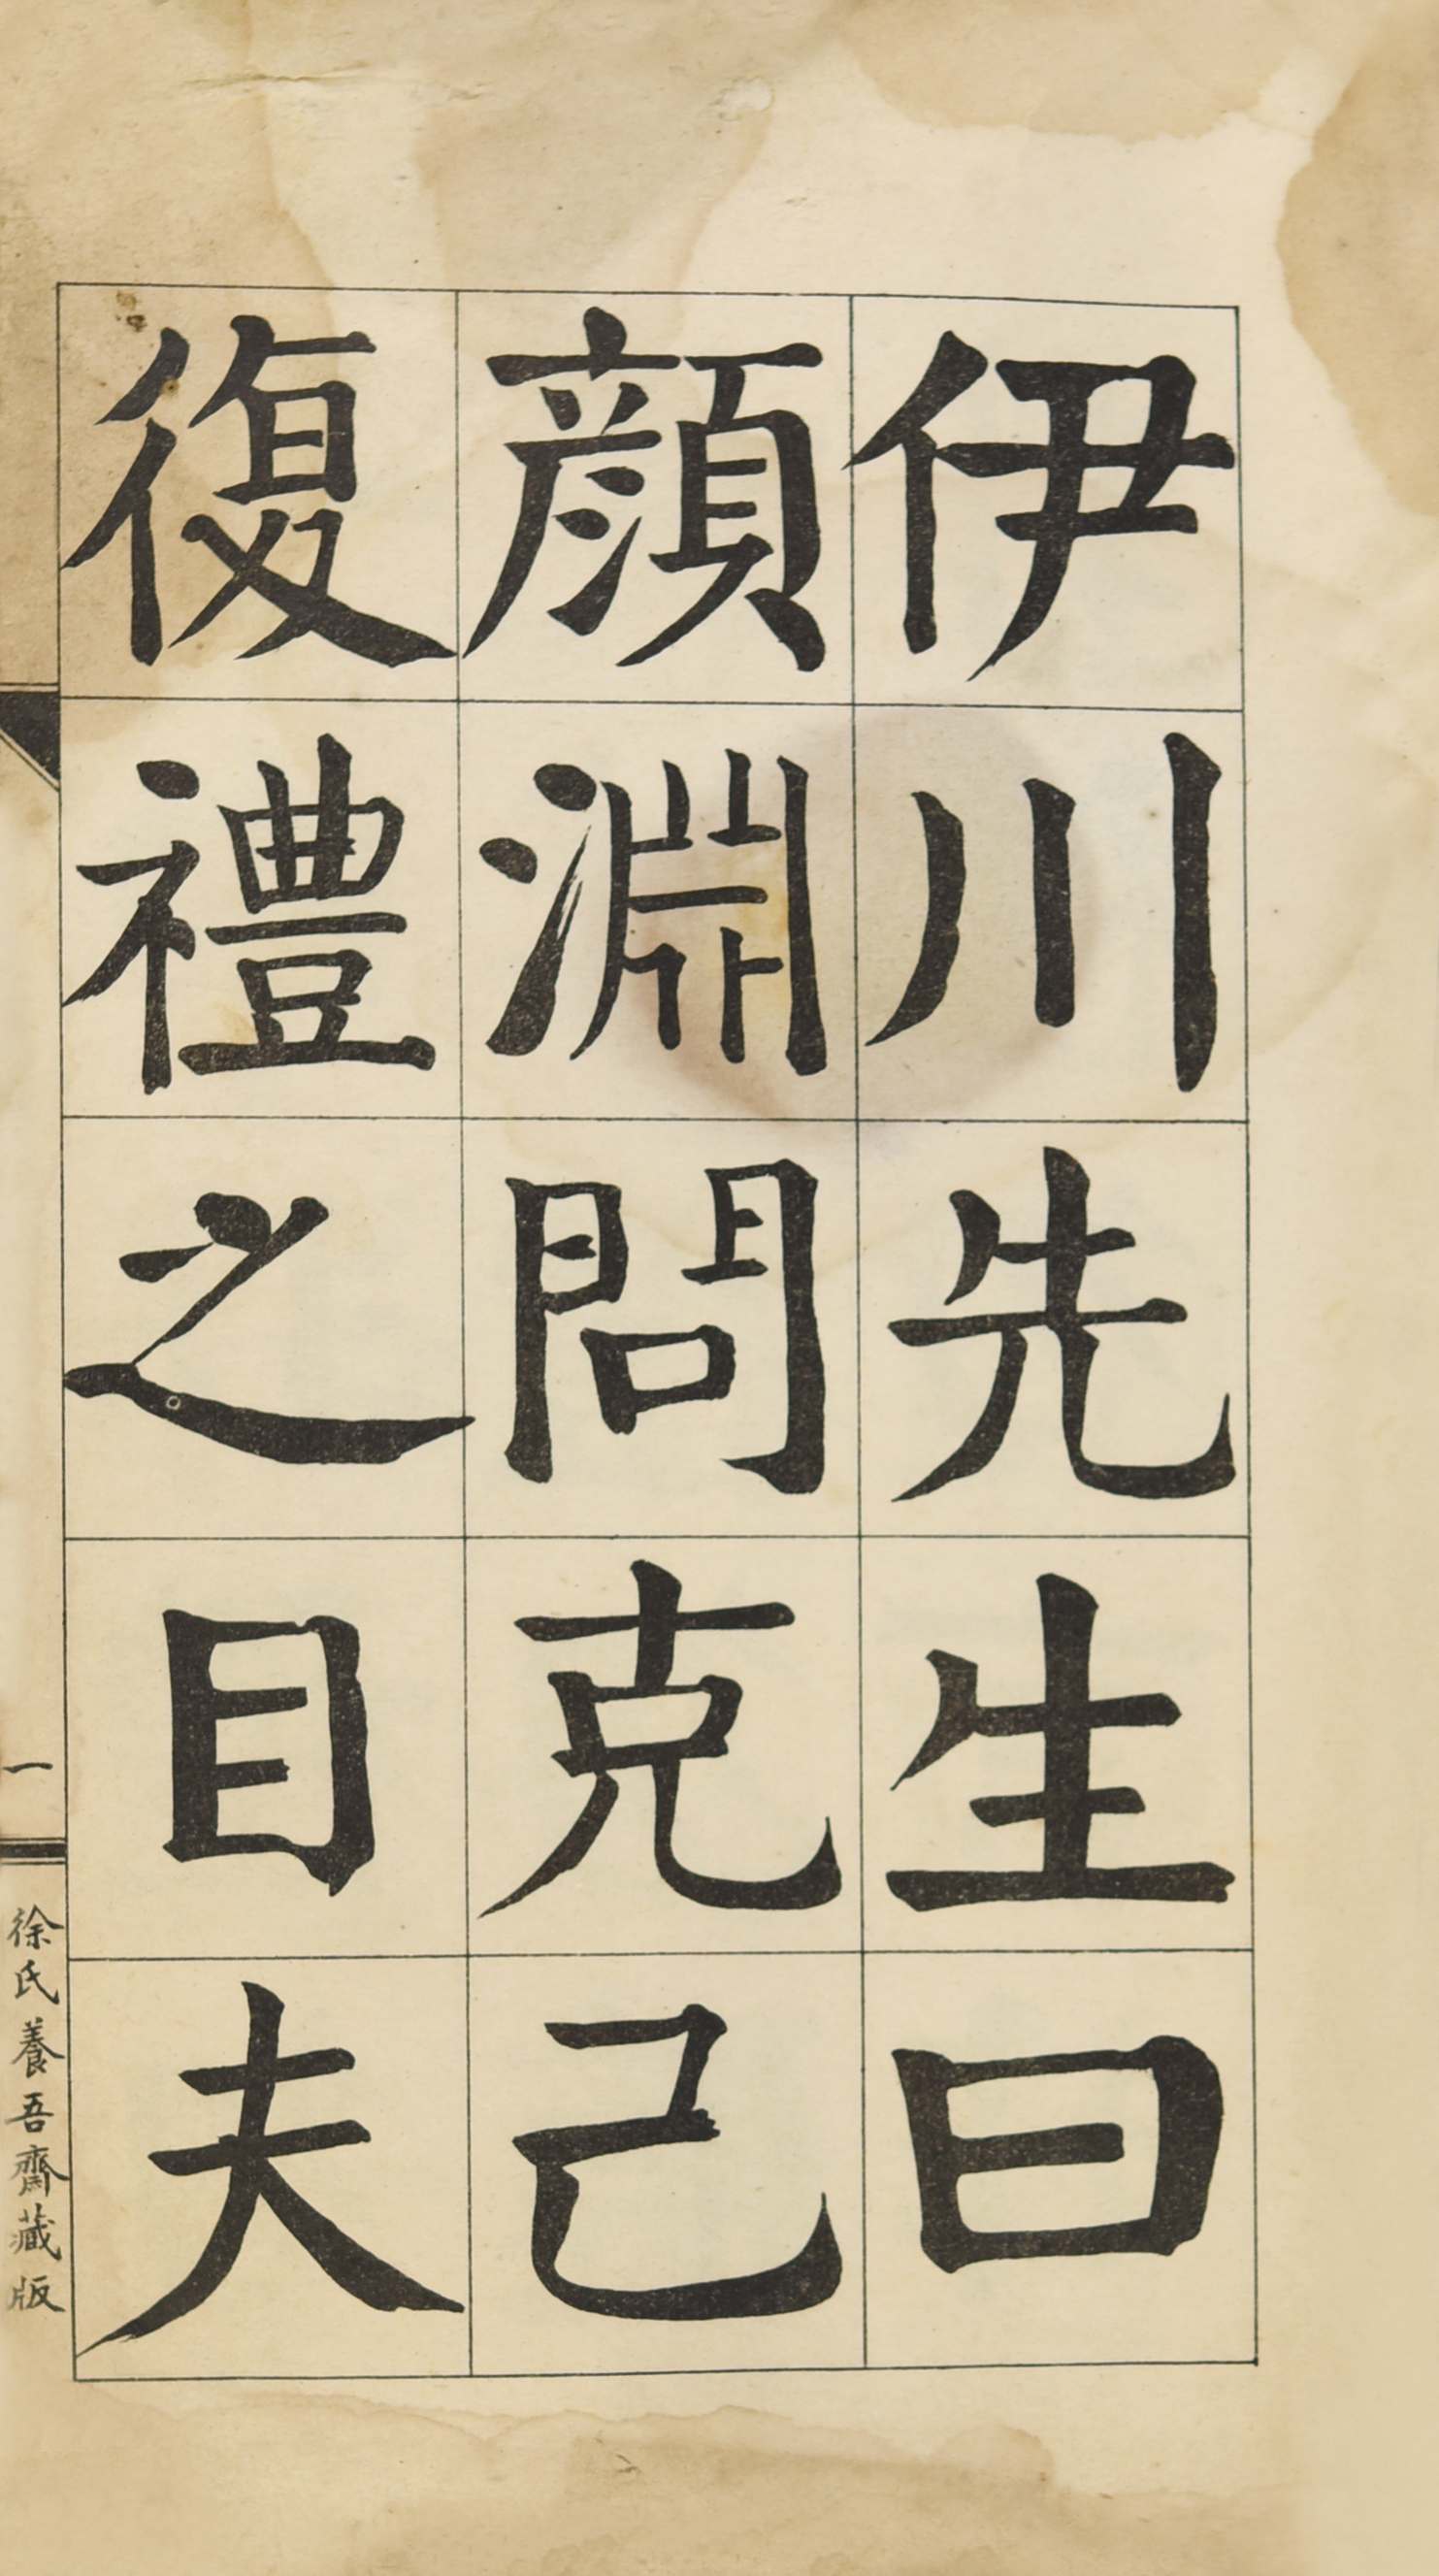 伊川先生曰
顏淵問克己
復禮之目夫
一
徐氏養吾齋藏版